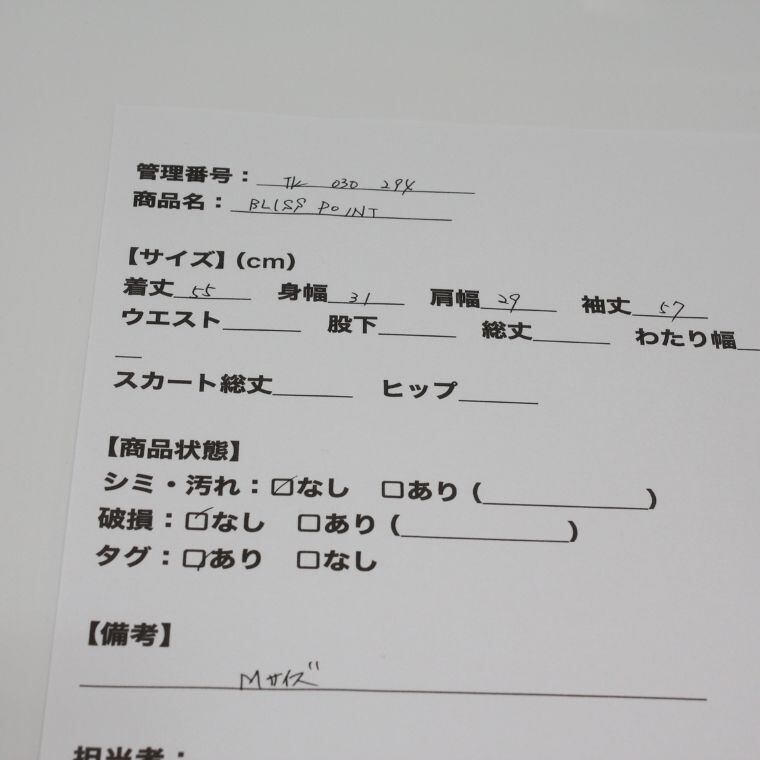 管理番号： TK 030 294
商品名： BLISS POINT
【サイズ】（cm）
着丈 55 身幅 31 肩幅 29 袖丈 57
ウエスト 股下 総丈 わたり幅
スカート総丈 ヒップ
【商品状態】
シミ・汚れ：☑なし □あり（ ）
破損：☑なし □あり（ ）
タグ：☑あり □なし
【備考】
Mサイズ
担当者：